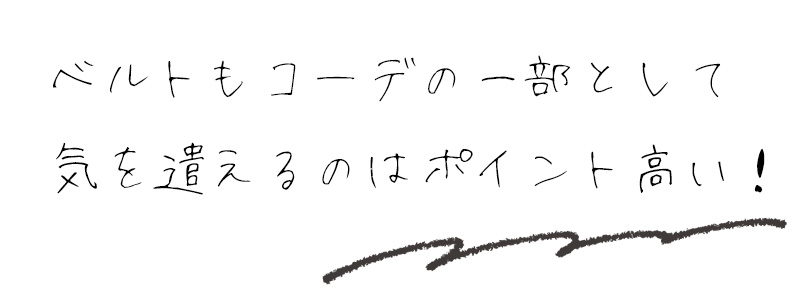 ベルトもコーデの一部として
気を遣えるのはポイント高い!